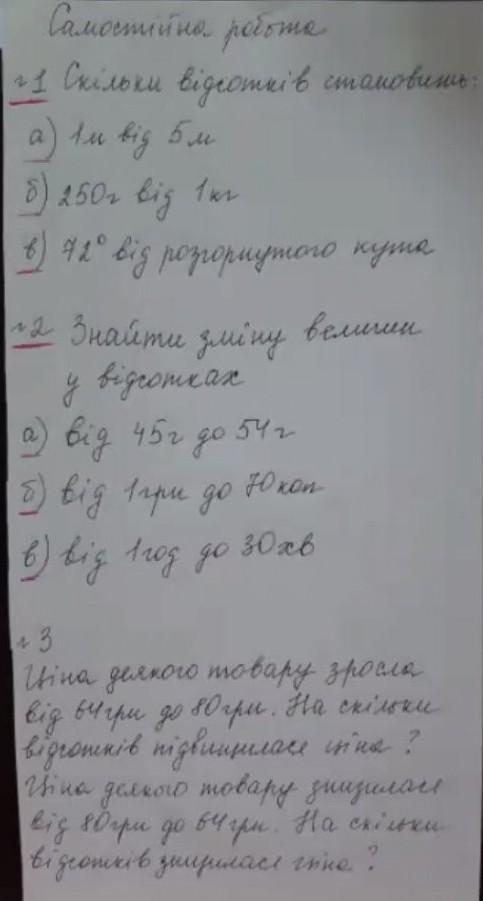 Самостійна робота
№1 Скільки відсотків становить:
а) 1м від 5м
б) 250г від 1кг
в) 72° від розгорнутого кута
№2 Знайти зміну величин
у відсотках
а) від 45г до 54г
б) від 1грн до 70коп
в) від 1год до 30хв
№3
Ціна деякого товару зросла
від 64грн до 80грн. На скільки
відсотків підвищилася ціна?
Ціна деякого товару знизилася
від 80грн до 64грн. На скільки
відсотків знизилася ціна?